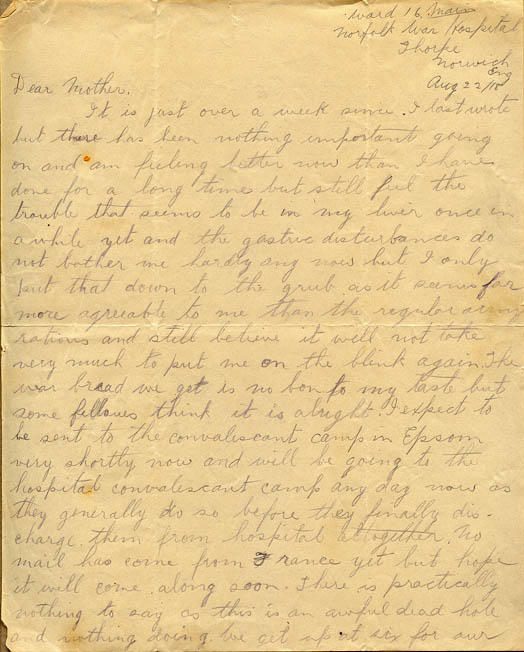 Ward 16. Main
Norfolk War Hospital
Thorpe
Norwich
Eng
Aug 22/18
Dear Mother.
It is just over a week since I last wrote
but there has been nothing important going
on and am feeling better now than I have
done for a long time but still feel the
trouble that seems to be in my liver once in
awhile yet and the gastric disturbances do
not bother me hardly any now but I only
put that down to the grub as it seems far
more agreeable to me than the regular army
rations and still believe it will not take
very much to put me on the blink again. The
war bread we get is no bon to my taste but
some fellows think it is alright. I expect to
be sent to the convalescant camp in Epsom
very shortly now and will be going to the
hospital convalescant camp any day now as
they generally do so before they finally dis-
charge them from hospital altogether. No
mail has come from France yet but hope
it will come along soon. There is practically
nothing to say as this is an awful dead hole
and nothing doing. We get up at six for our